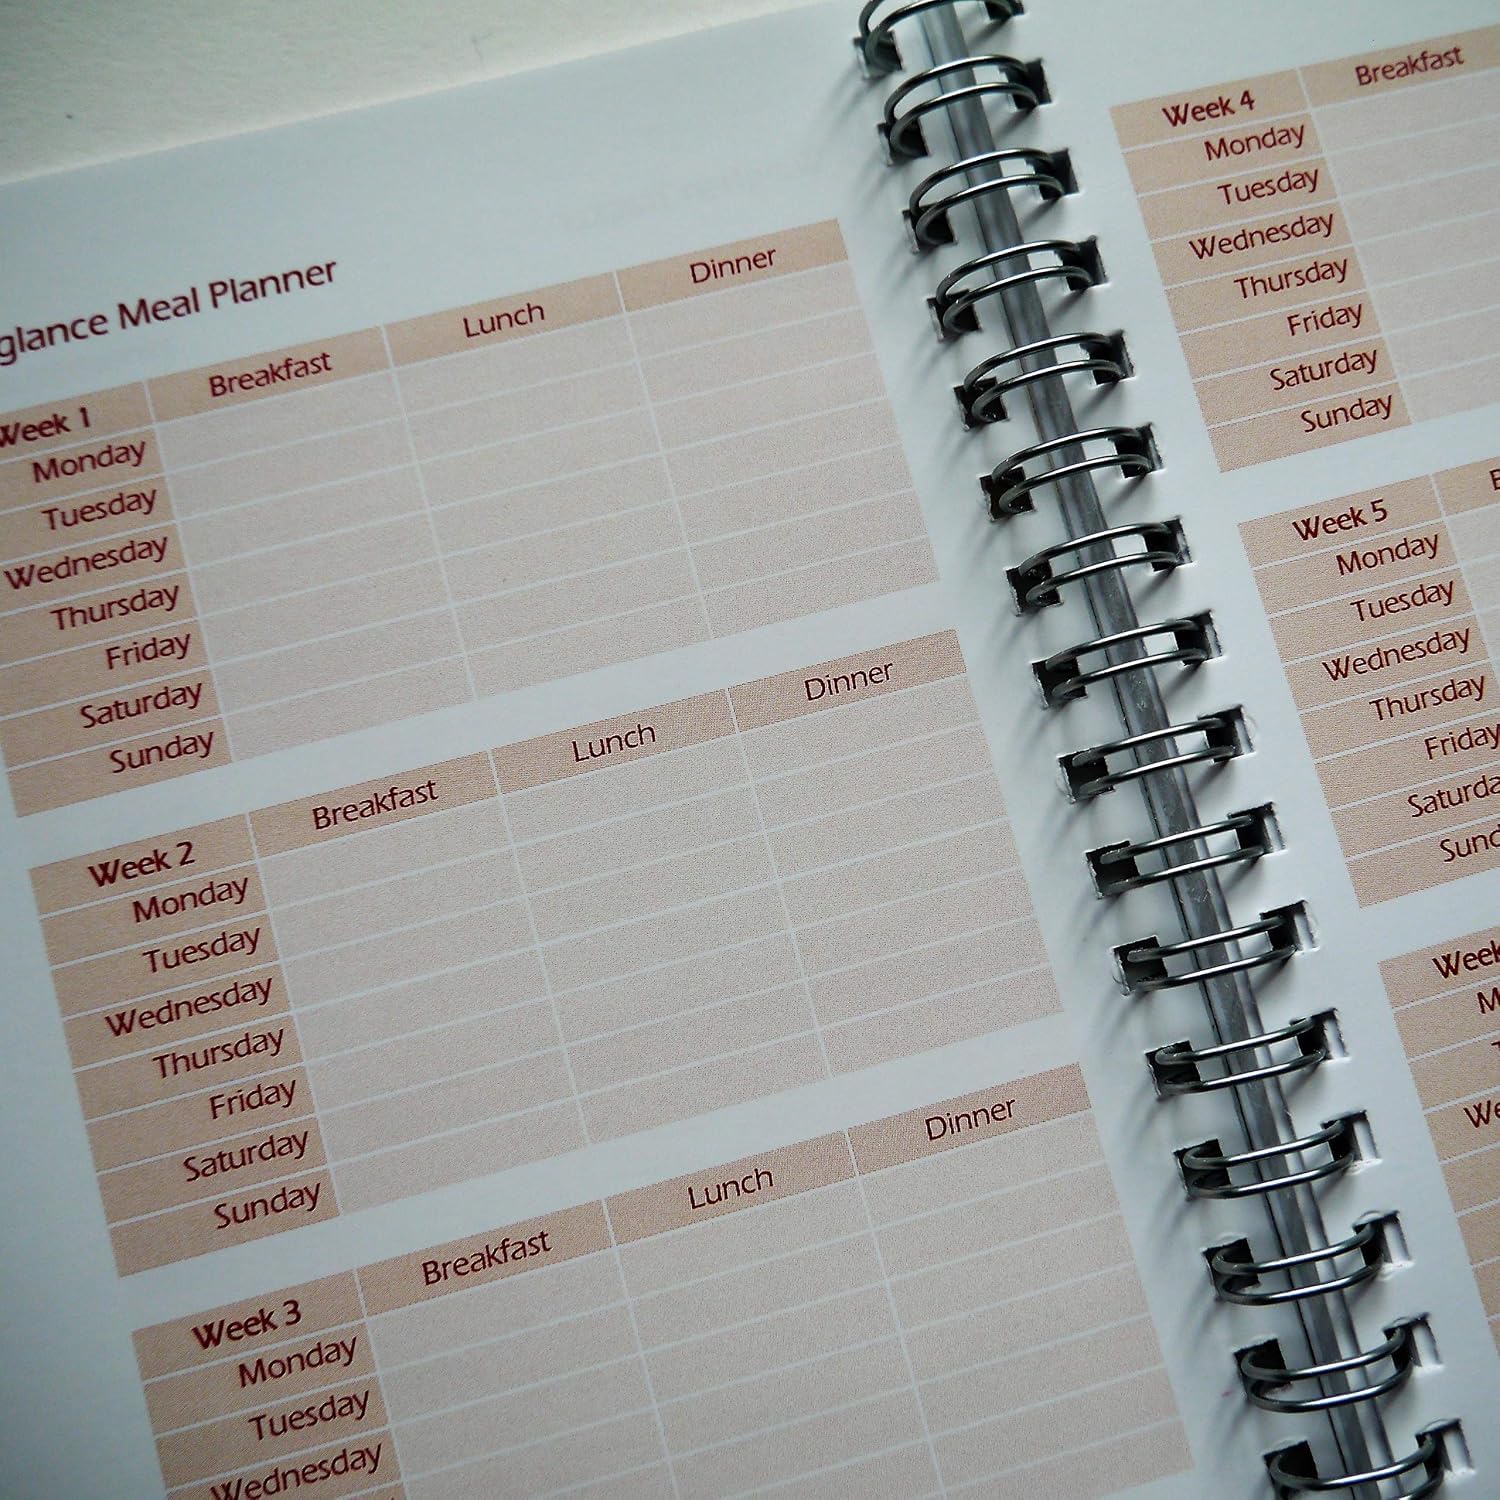 glance Meal Planner
Week 1 Breakfast Lunch Dinner
Monday
Tuesday
Wednesday
Thursday
Friday
Saturday
Sunday
Week 2 Breakfast Lunch Dinner
Monday
Tuesday
Wednesday
Thursday
Friday
Saturday
Sunday
Week 3 Breakfast Lunch Dinner
Monday
Tuesday
Wednesday
Week 4 Breakfast
Monday
Tuesday
Wednesday
Thursday
Friday
Saturday
Sunday
Week 5
Monday
Tuesday
Wednesday
Thursday
Friday
Saturda
Sund
Week